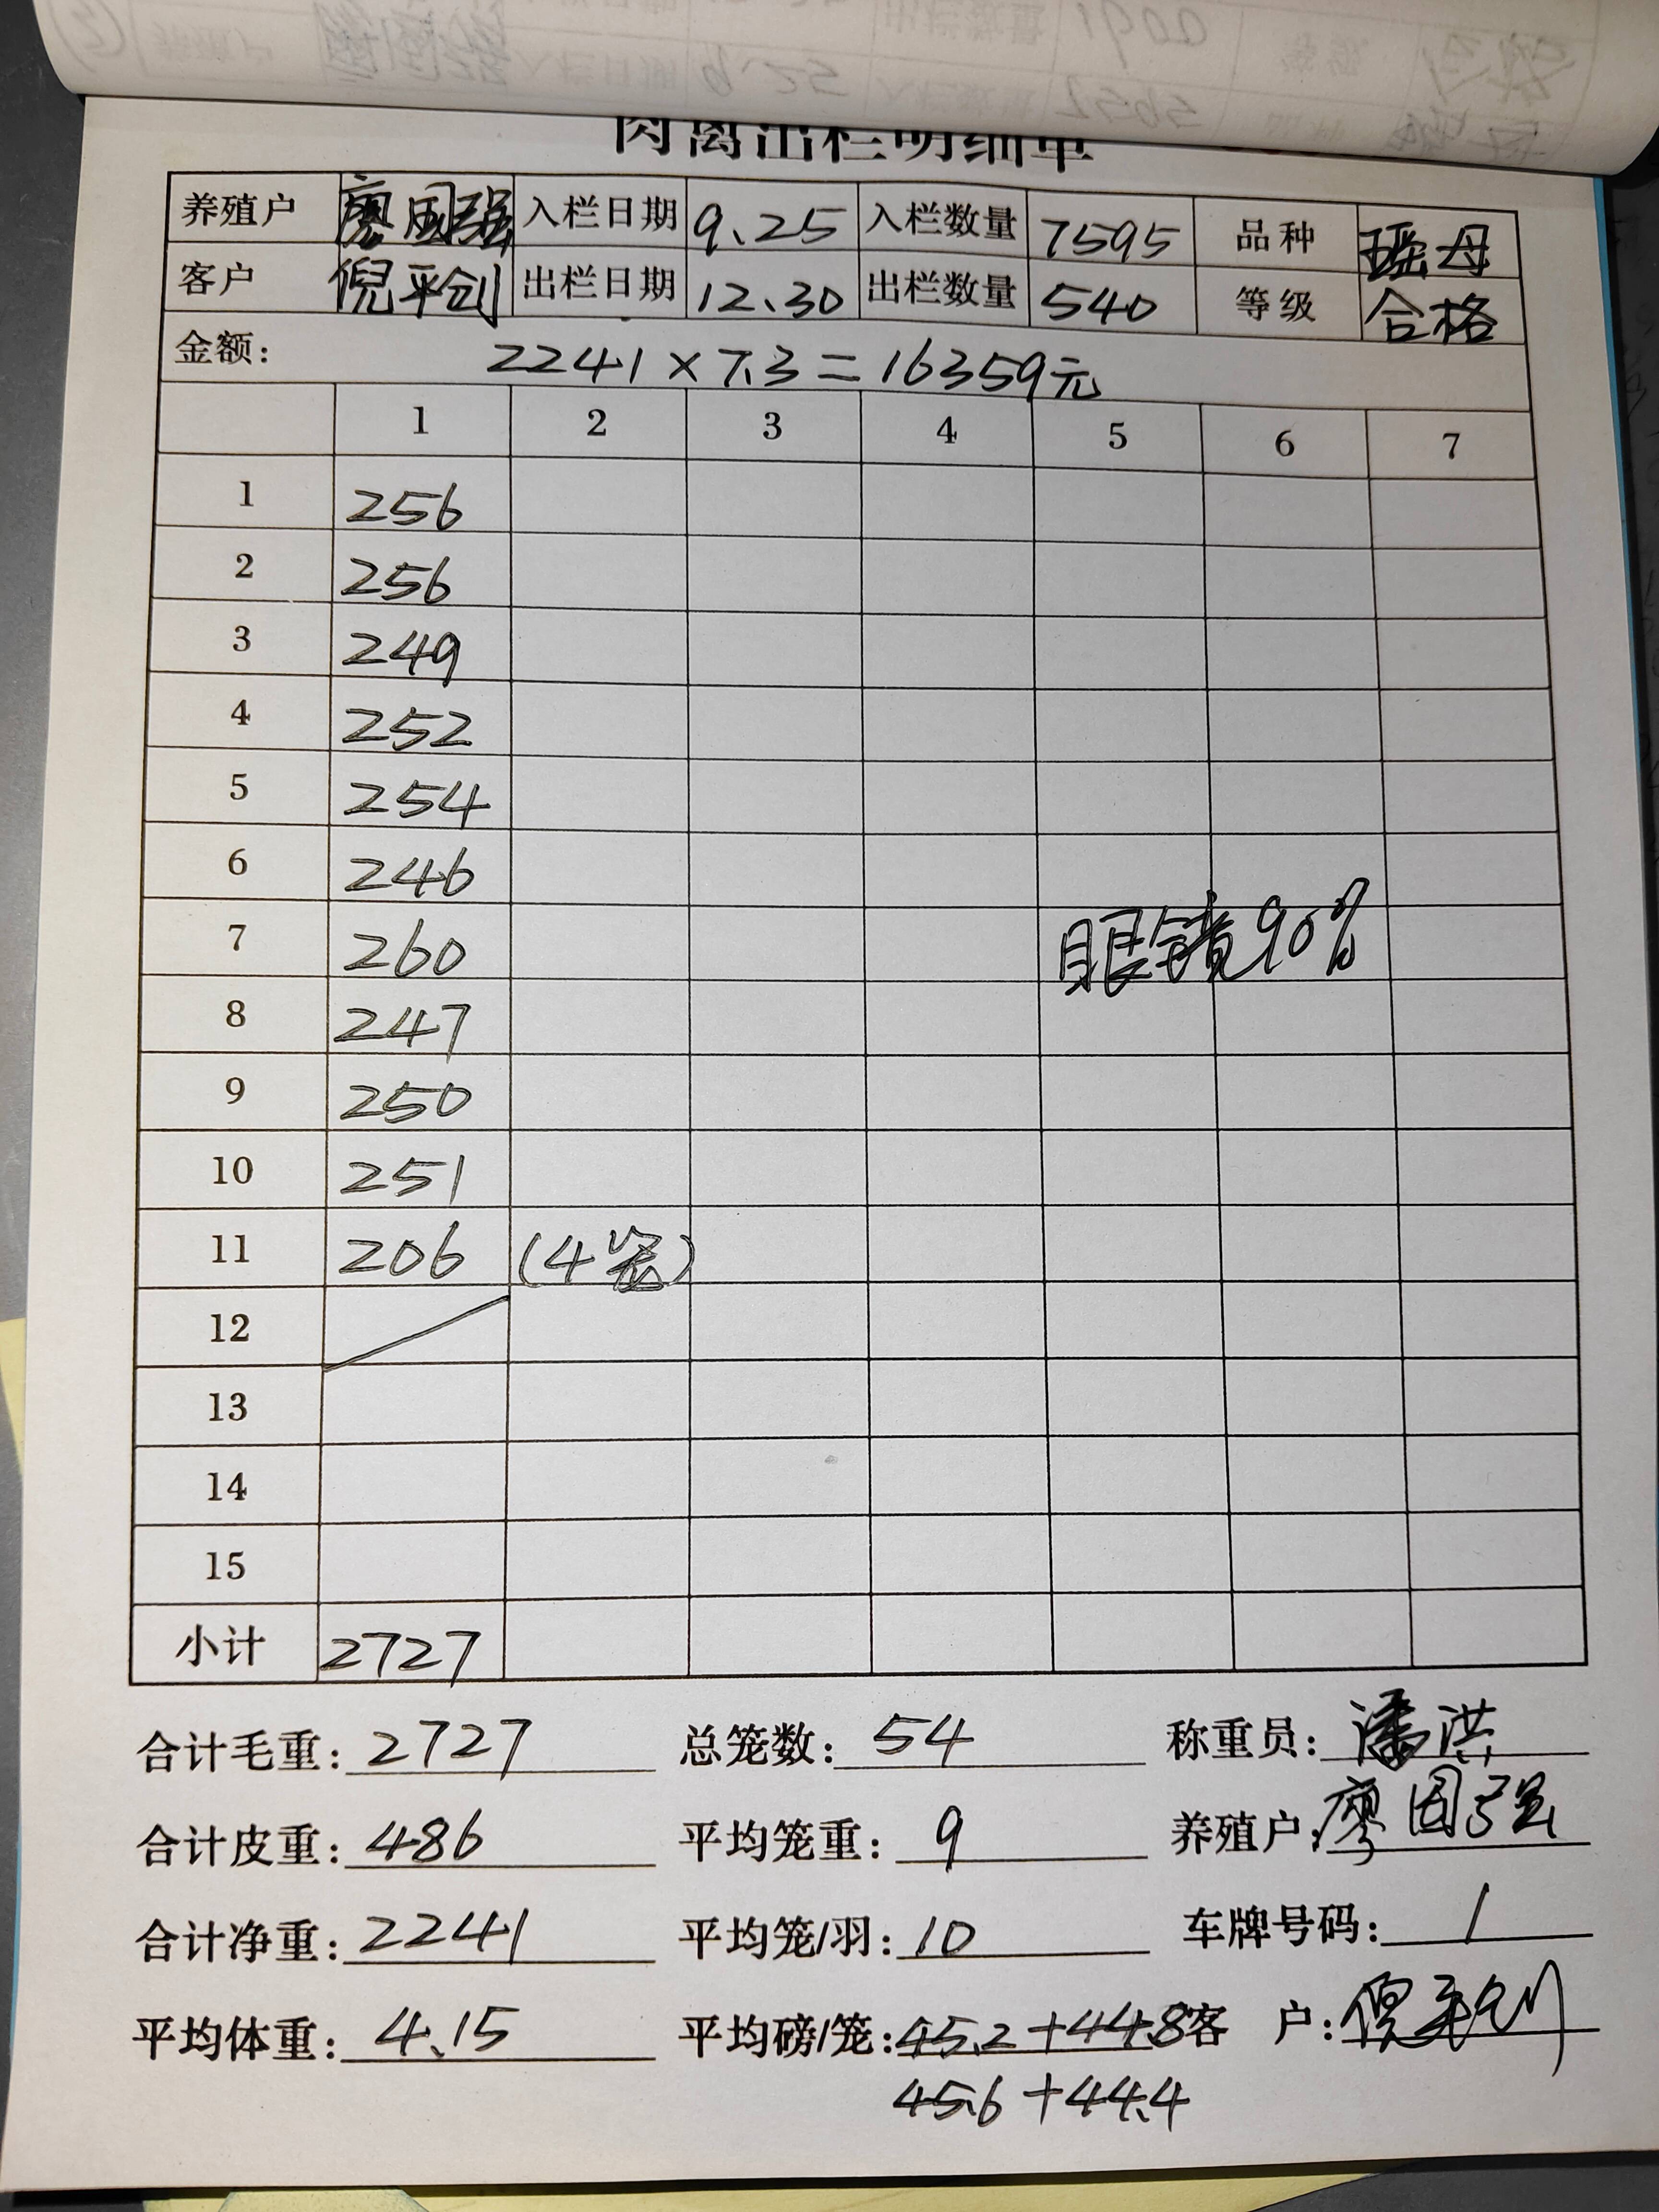 肉禽出栏明细单
养殖户 廖国强 入栏日期 9.25 入栏数量 7595 品种 瑶母
客户 倪平创 出栏日期 12.30 出栏数量 540 等级 合格
金额: 2241×7.3=16359元
1 2 3 4 5 6 7
1 256
2 256
3 249
4 252
5 254
6 246
7 260 眼镜90%
8 247
9 250
10 251
11 206 (4笼)
12
13
14
15
小计 2727
合计毛重: 2727 总笼数: 54 称重员: 潘洪
合计皮重: 486 平均笼重: 9 养殖户: 廖国强
合计净重: 2241 平均笼/羽: 10 车牌号码: /
平均体重: 4.15 平均磅/笼: 45.2+44.8 客户: 倪平创
45.6+44.4